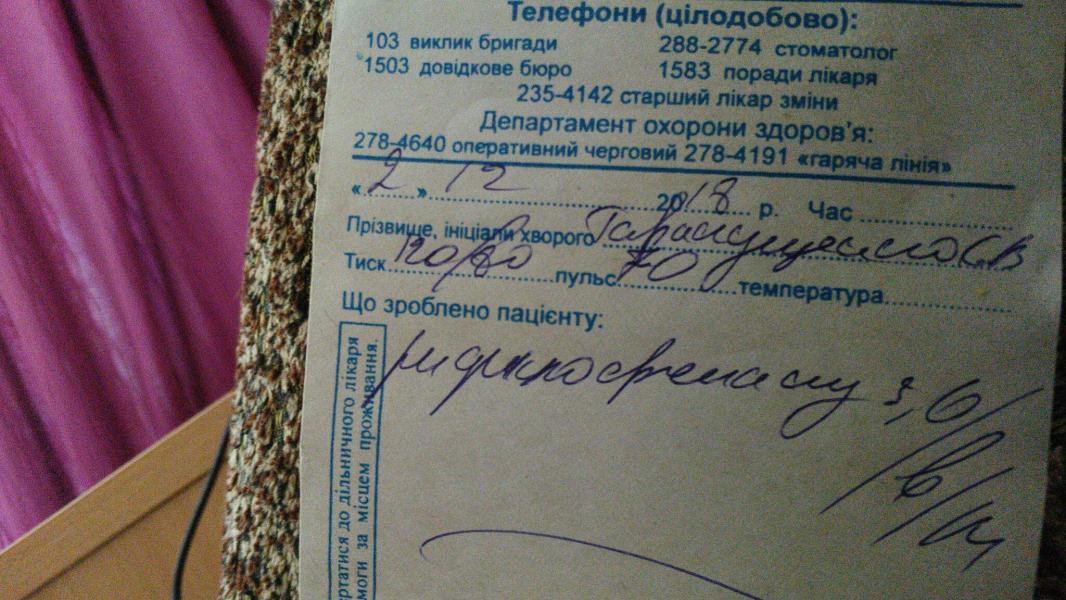 Телефони (цілодобово):
103 виклик бригади 288-2774 стоматолог
1503 довідкове бюро 1583 поради лікаря
235-4142 старший лікар зміни
Департамент охорони здоров'я:
278-4640 оперативний черговий 278-4191 «гаряча лінія»
«2» 12 2018 р. Час
Прізвище, ініціали хворого
Тиск 120/80 пульс 70 температура
Що зроблено пацієнту:
в/м
ертатися до дільничного лікаря
моги за місцем проживання.